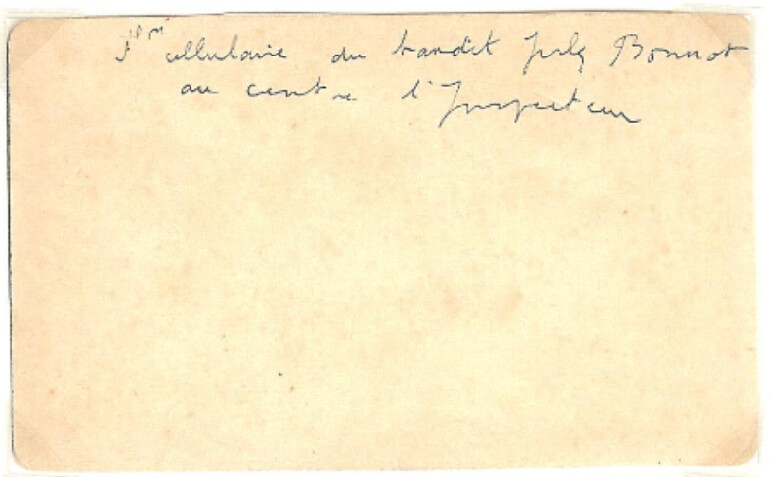 cellulaire du bandit Jules Bonnot
au centre l'Inspecteur